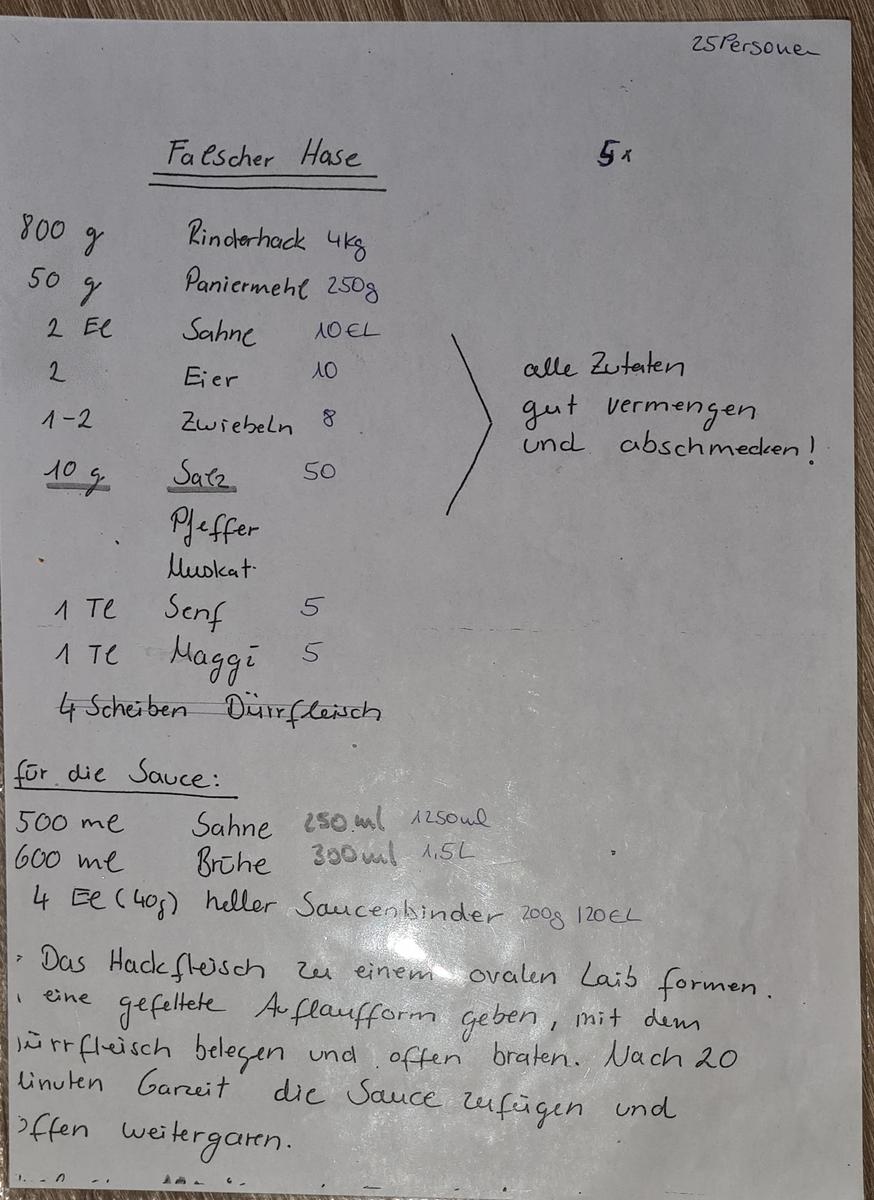 25 Personen
Falscher Hase 5x
800 g Rinderhack 4kg
50 g Paniermehl 250g
2 El Sahne 10 EL
2 Eier 10
1-2 Zwiebeln 8
10 g Salz 50
alle Zutaten
gut vermengen
und abschmecken!
Pfeffer
Muskat
1 Tl Senf 5
1 Tl Maggi 5
4 Scheiben Dürrfleisch
für die Sauce:
500 ml Sahne 250 ml 1250ml
600 ml Brühe 300 ml 1,5L
4 El (40g) heller Saucenbinder 200g 120EL
Das Hackfleisch zu einem ovalen Laib formen.
eine gefettete Auflaufform geben, mit dem
ürrfleisch belegen und offen braten. Nach 20
inuten Garzeit die Sauce zufügen und
offen weitergaren.